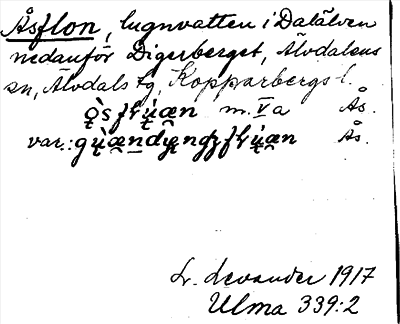 Åsflon, lugnvatten i Dalälven
nedanför Digerberget, Älvdalens
sn, Älvdals tg, Kopparbergs l.
m. Va Ås.
var.: Ås.
L. Levander 1917
Ulma 339:2